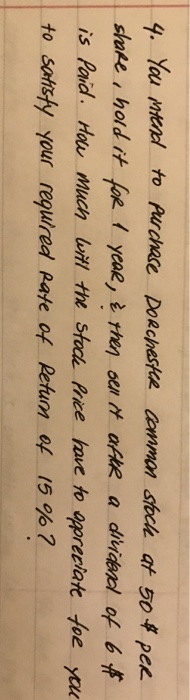 4. You intend to purchase Dorchester common stock at 50 $ per
share, hold it for 1 year, & then sell it after a dividend of 6 $
is paid. How much will the stock price have to appreciate for you
to satisfy your required rate of return of 15 %?